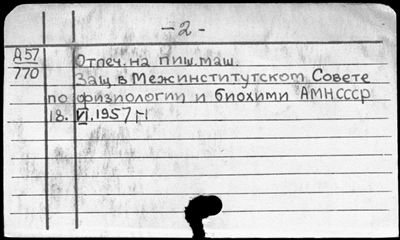 - 2 -
А57 Отпеч. на пиш. маш.
770 Защ. в Межинститутском Совете
по физиологии и биохими АМНСССР
18. VI. 1957 г.